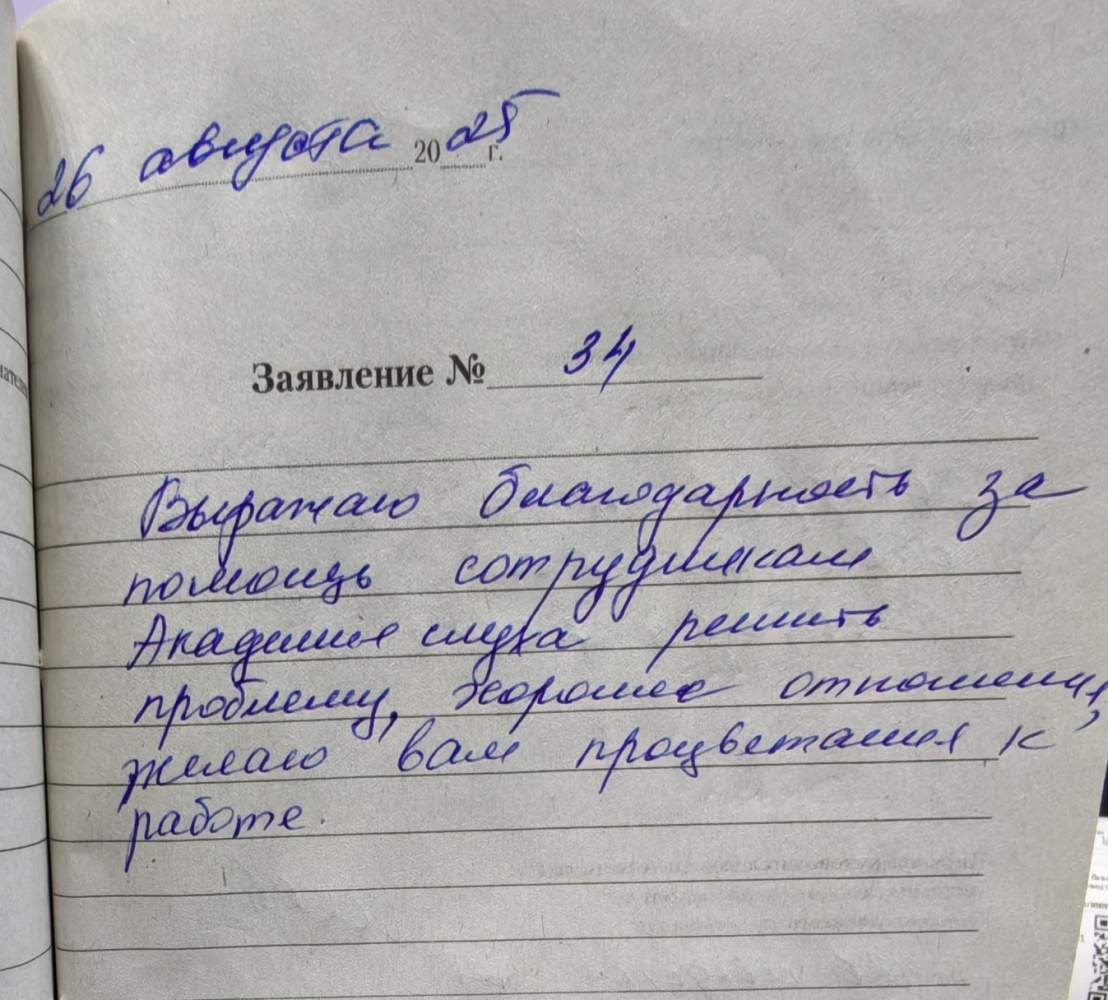 26 августа 2025 г.
Заявление № 34
Выражаю благодарность за
помощь сотрудникам
Академия слуха решить
проблему, хорошее отношение,
желаю вам процветания к
работе.